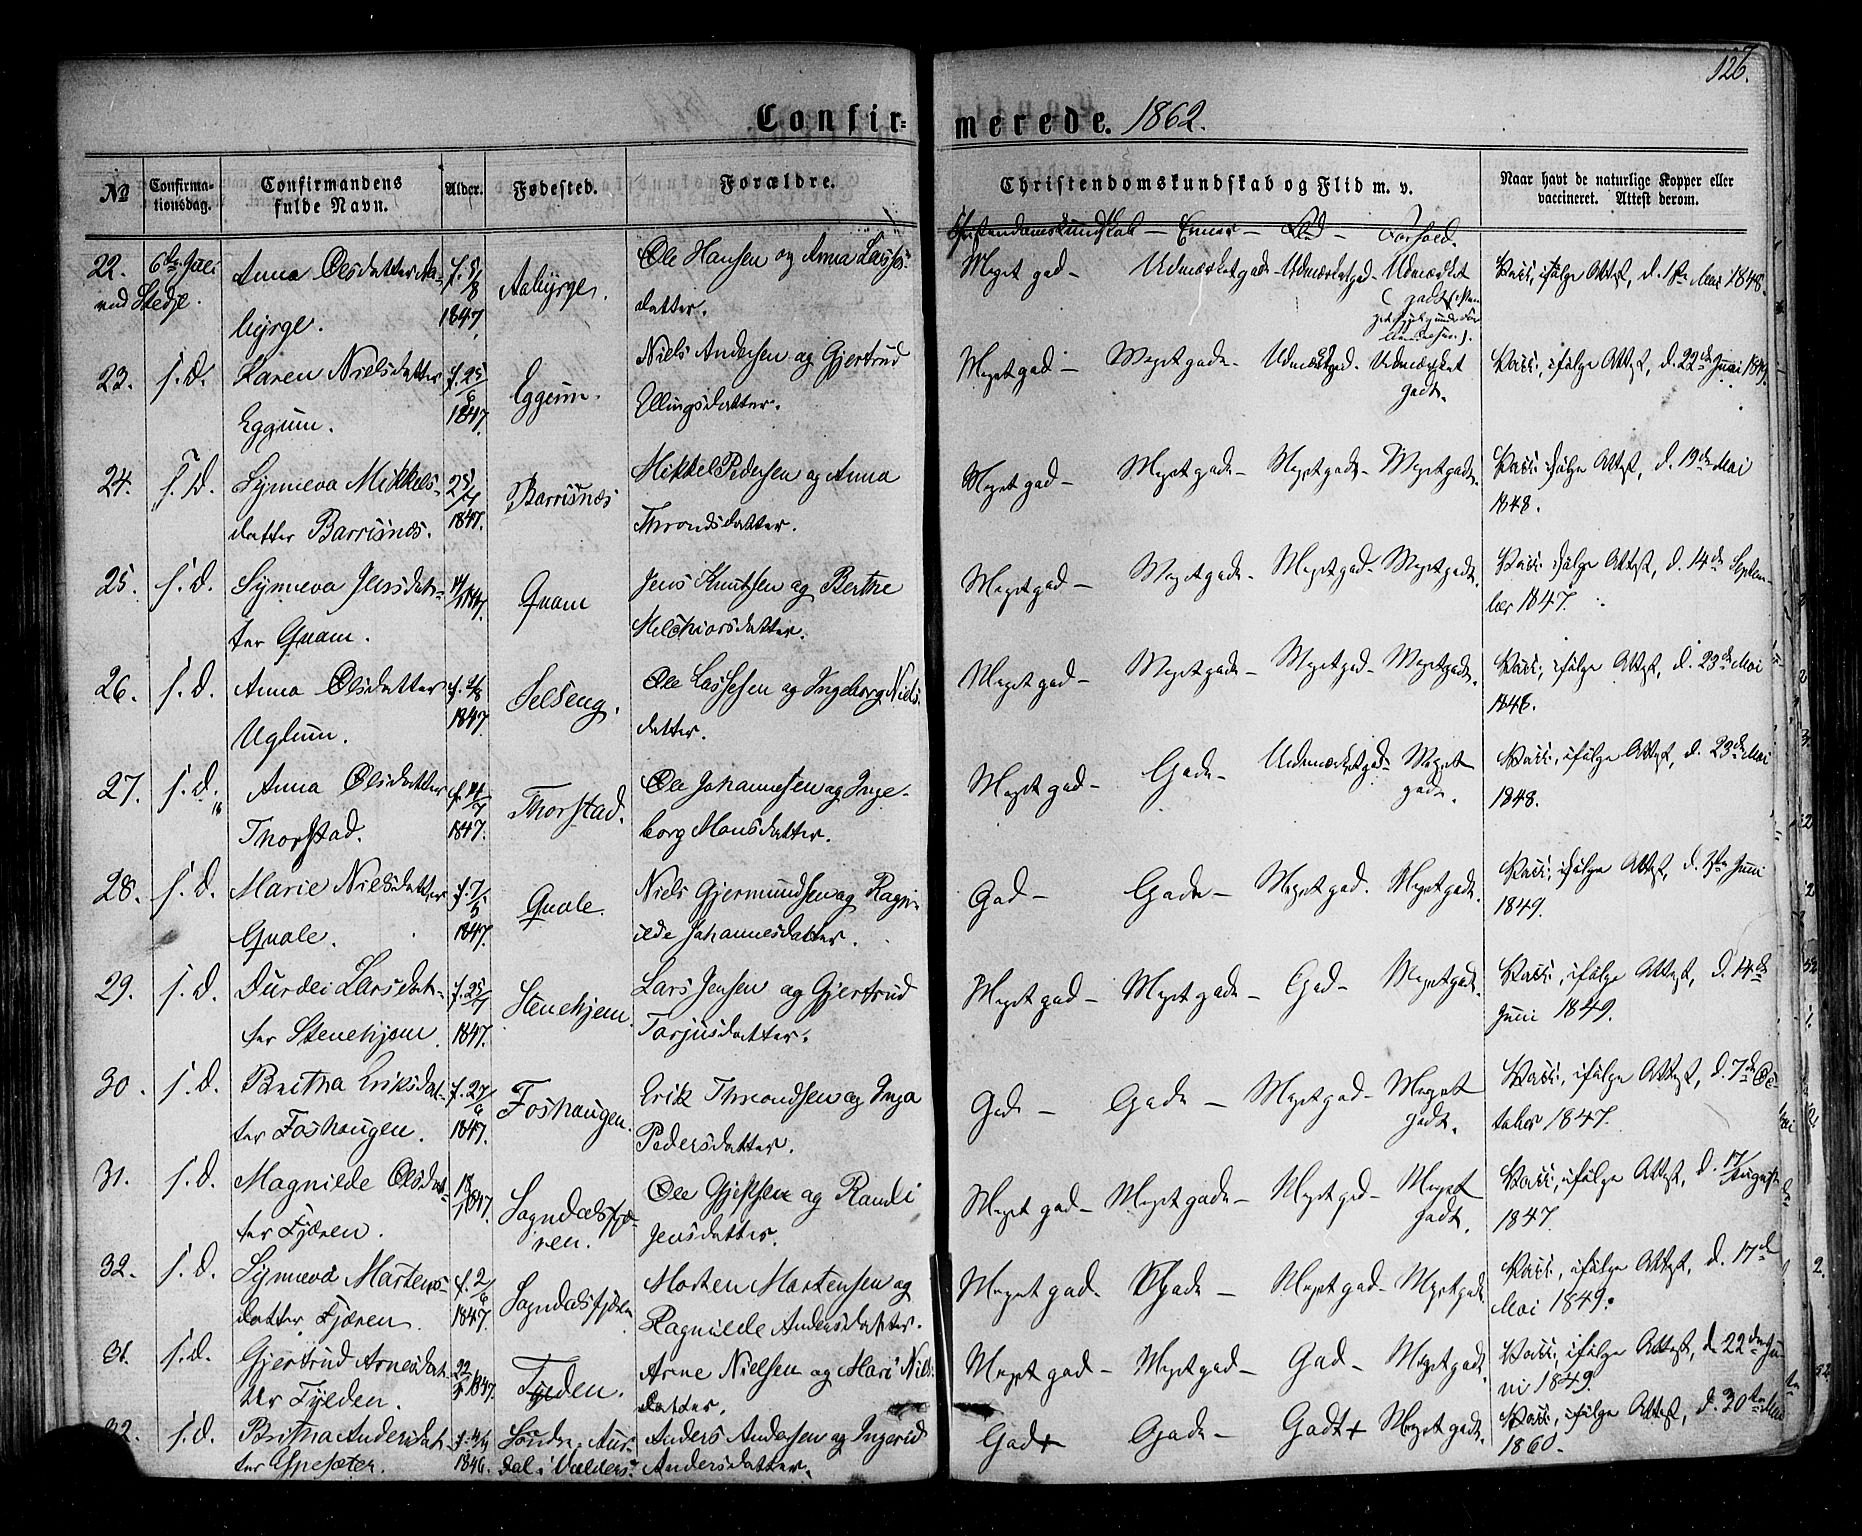 126.
Confir= merede. 1862.
No Confirma-tionsdag. Confirmandens fulde Navn. Alder. Fødested. Forældre. Christendomskundskab og Flid m. v. Naar havt de naturlige Kopper eller vaccineret. Attest derom.
Christendomskundskab - Evner - Flid - Forhold.
22. 6te Juli ved Stedje. Anna Olsdatter Aa-
byrge. f. 5/8 1847. Aabyrge. Ole Hansen og Anna Lasses-
datter. Meget god - Udmærket gode - Udmærket god - Udmærket godt Vacc., ifølge Attest, d. 1ste Mai 1848.
23. s. D. Karen Nielsdatter
Eggum. f. 25/6 1847. Eggum. Niels Andersen og Gjertrud
Ellingsdatter. Meget god - Meget gode - Udmærket god - Udmærket godt. Vacc., ifølge Attest, d. 22de Juni 1849.
24. s. D. Synneva Mikkels-
datter Barrisnæs. 25/7 1847. Barrisnæs Mikkel Pedersen og Anna
Throndsdatter. Meget god - Meget gode - Meget gode - Meget godt. Vacc. ifølge Attest, d. 19de Mai
1848.
25. s. D. Synneva Jensdat-
ter Quam. 1847. Quam Jens Knutsen og Berthe
Melchiorsdatter. Meget god - Meget gode - Meget god - Meget godt. Vacc. ifølge Attest, d. 14de Septem-
ber 1847.
26. s. D. Anna Olsdatter
Uglum. 1847. Selseng. Ole Lassesen og Ingeborg Niels-
datter. Meget god - Meget gode - Meget god - Meget godt. Vacc., ifølge Attest, d. 23de Mai
1848.
27. s. d. Anna Olsdatter
Thorstad. 1847. Thorstad. Ole Johannesen og Inge-
borg Monsdatter. Meget god - Gode - Udmærket god - Meget godt. Vacc., ifølge Attest, d. 23de Mai
1848.
28. s. D. Marie Nielsdatter
Quale. f. 7/5 1847. Quale. Niels Gjermundsen og Ragn-
ilde Johannesdatter. God - Gode - Meget god. Meget godt. Vacc., ifølge Attest, d. Juni
1849.
29. s. d. Durdei Larsdat-
ter Stenehjem. f. 25/7 1847. Stenehjem. Lars Jensen og Gjertrud
Torjusdatter. Meget god - Meget gode - God - Meget godt. Vacc., ifølge Attest, d. 14de
Juni 1849.
30. s. d. Britha Eriksdat-
ter Foshaugen. f. 27/6 1847. Foshaugen. Erik Throndsen og Inga
Pedersdatter. Gode - Gode - Meget god - Meget godt. Vacc., ifølge Attest, d. 7de Oc-
tober 1847.
31. s. d. Magnilde Olsdat-
ter Fjæren. 1847. Sogndalsfjæ-
ren. Ole Gjestsen og Randi
Jensdatter. Meget god - Meget gode - Meget god - Meget godt. Vacc., ifølge Attest, d. 17/ August
1847.
32. s. d. Synneva Martens-
datter Fjæren. f. 2/6 1847. Sogndalsfjæren Morten Martensen og
Ragnilde Andersdatter. Meget god - Gode - Meget god - Meget godt. Vacc., ifølge Attest, d. 17de
Mai 1849.
31. s. d. Gjertrud Arnesdat-
ter Fylden. 22/5 1847. Fylden. Arne Nielsen og Mari Niels-
datter. Meget god - Meget god - God - Meget godt. Vacc., ifølge Attest, d. 22de Ju-
ni 1849.
32. s. d. Britha Andersdat-
ter Espesæter. 1846. Søndre Aur-
dal i Valders. Anders Andersen og Ingerid
Andersdatter. God - Gode - Godt + Meget godt. Vacc., ifølge Attest, d. 30te Mai
1860.